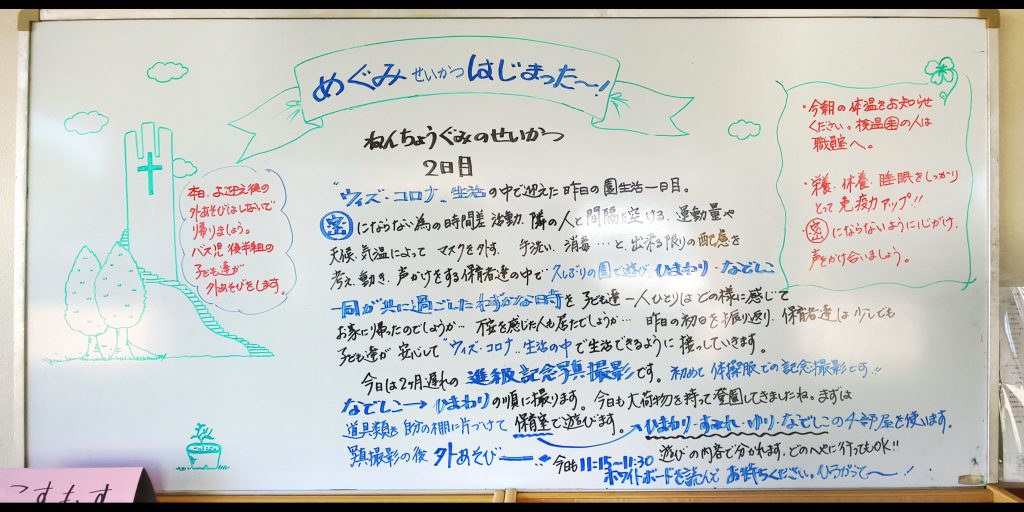 めぐみ せいかつ はじまった〜!
ねんちょうぐみのせいかつ
2日目
"ウィズ・コロナ"生活の中で迎えた昨日の園生活一日目。
密にならない為の時間差活動、隣の人と間隔を空ける、運動量や
天候、気温によって マスクを外す、手洗い、消毒…と、出来る限りの配慮を
考え、動き、声かけをする保育者達の中で 久しぶりの園で遊び、ひまわり・なでしこ
一同が共に過ごしたわずかな日時を 子ども達一人ひとりは どの様に感じて
お家に帰ったのでしょうか… 不安を感じた人も居たでしょうか… 昨日の初日を振り返り、保育者達は少しでも
子ども達が 安心して"ウィズ・コロナ"生活の中で生活できるように 援っていきます。
今日は2ヶ月遅れの 進級記念写真撮影です。初めて 体操服での記念撮影です!!
なでしこ→ひまわりの順に撮ります。今日も大荷物を持って登園してきましたね。まずは
道具類を 自分の棚に片づけて 保育室で遊びます。 ひまわり・すみれ・ゆり・なでしこの4部屋を使います。
写真撮影の後 外あそび 今日も 11:15〜11:30 遊びの内容で分かれます。どのへやに行ってもOK!!
ホワイトボードを読んで お待ちください。ひろがって〜!
本日、お迎え後の
外あそびはしないで
帰りましょう。
バス児 後半組の
子ども達が
外あそびをします。
・今朝の体温をお知らせ
ください。検温未の人は
職員室へ。
・栄養・休養・睡眠をしっかり
とって 免疫力アップ!!
・密にならないように心がけ、
声をかけ合いましょう。